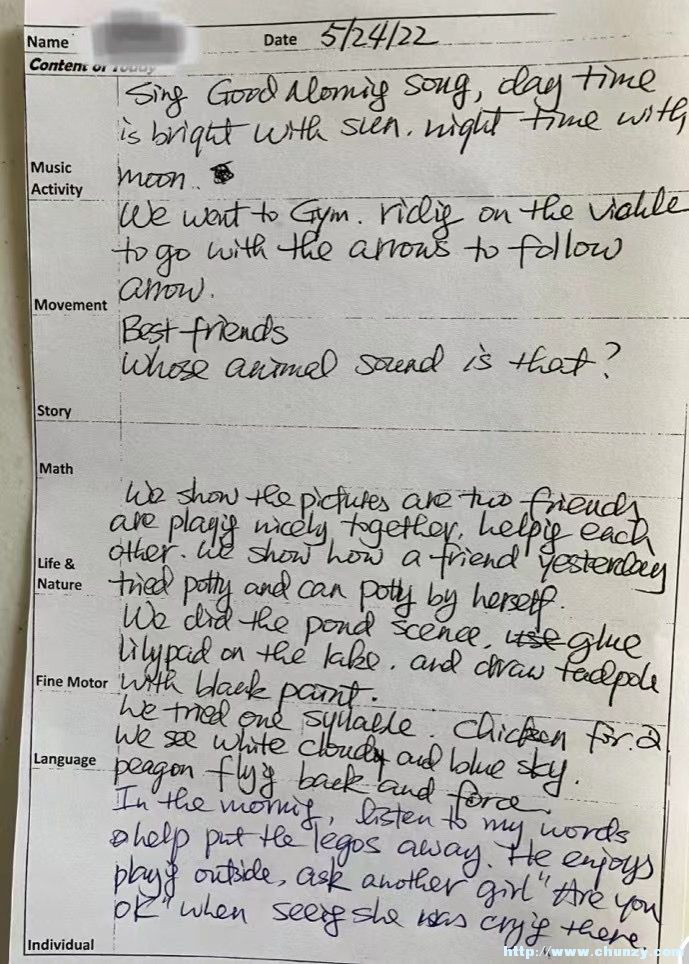 Name Date 5/24/22
Content of Today
Sing Good Mornig song, day time
is bright with sun. night time with
Music
Activity
moon.
We went to Gym. ridig on the viahle
to go with the arrows to follow
Movement
arrow.
Best friends
Whose animal sound is that?
Story
Math
We show the pictures are two friends
are playig nicely together, helpig each
other. We show how a friend yesterday
Life &
Nature
tried potty and can potty by herself.
We did the pond scence. use glue
lilypad on the lake. and draw tadpole
Fine Motor
with black paint.
We tried one syllable. Chicken for 2
We see white cloudy and blue sky.
Language
peagon fly'g back and force
In the mornig, listen to my words
help put the legos away. He enjoys
play'g outside, ask another girl "Are you
OK" when seeig she was cry'g there.
Individual
http://www.chunzy.com